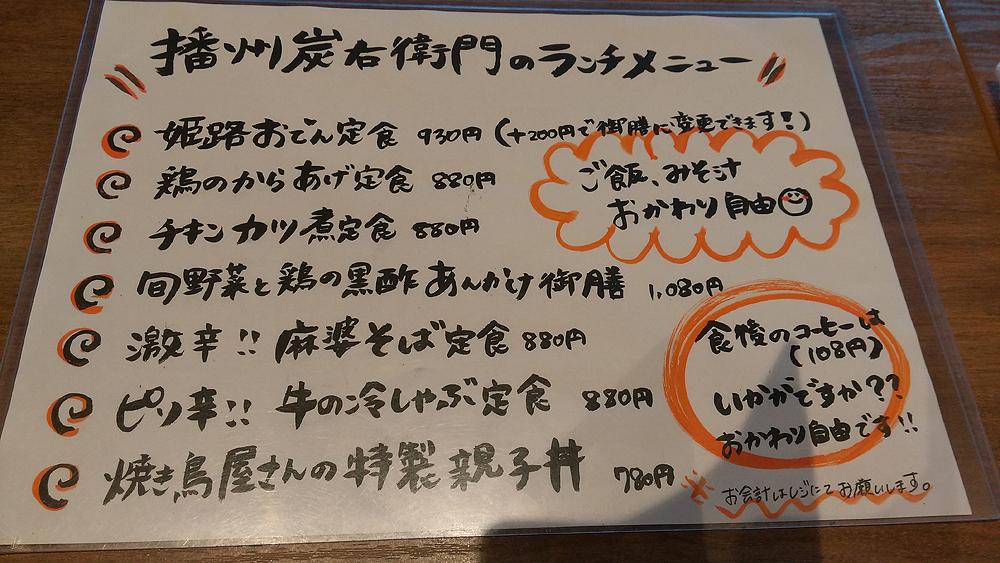 播州炭右衛門のランチメニュー
姫路おでん定食 930円 (+200円で御膳に変更できます!)
鶏のからあげ定食 880円
チキンカツ煮定食 880円
旬野菜と鶏の黒酢あんかけ御膳 1,080円
激辛!! 麻婆そば定食 880円
ピリ辛!! 牛の冷しゃぶ定食 880円
焼き鳥屋さんの特製親子丼 780円
ご飯、みそ汁
おかわり自由
食後のコーヒーは
(108円)
いかがですか??
おかわり自由です!!
※お会計はレジにてお願いします。